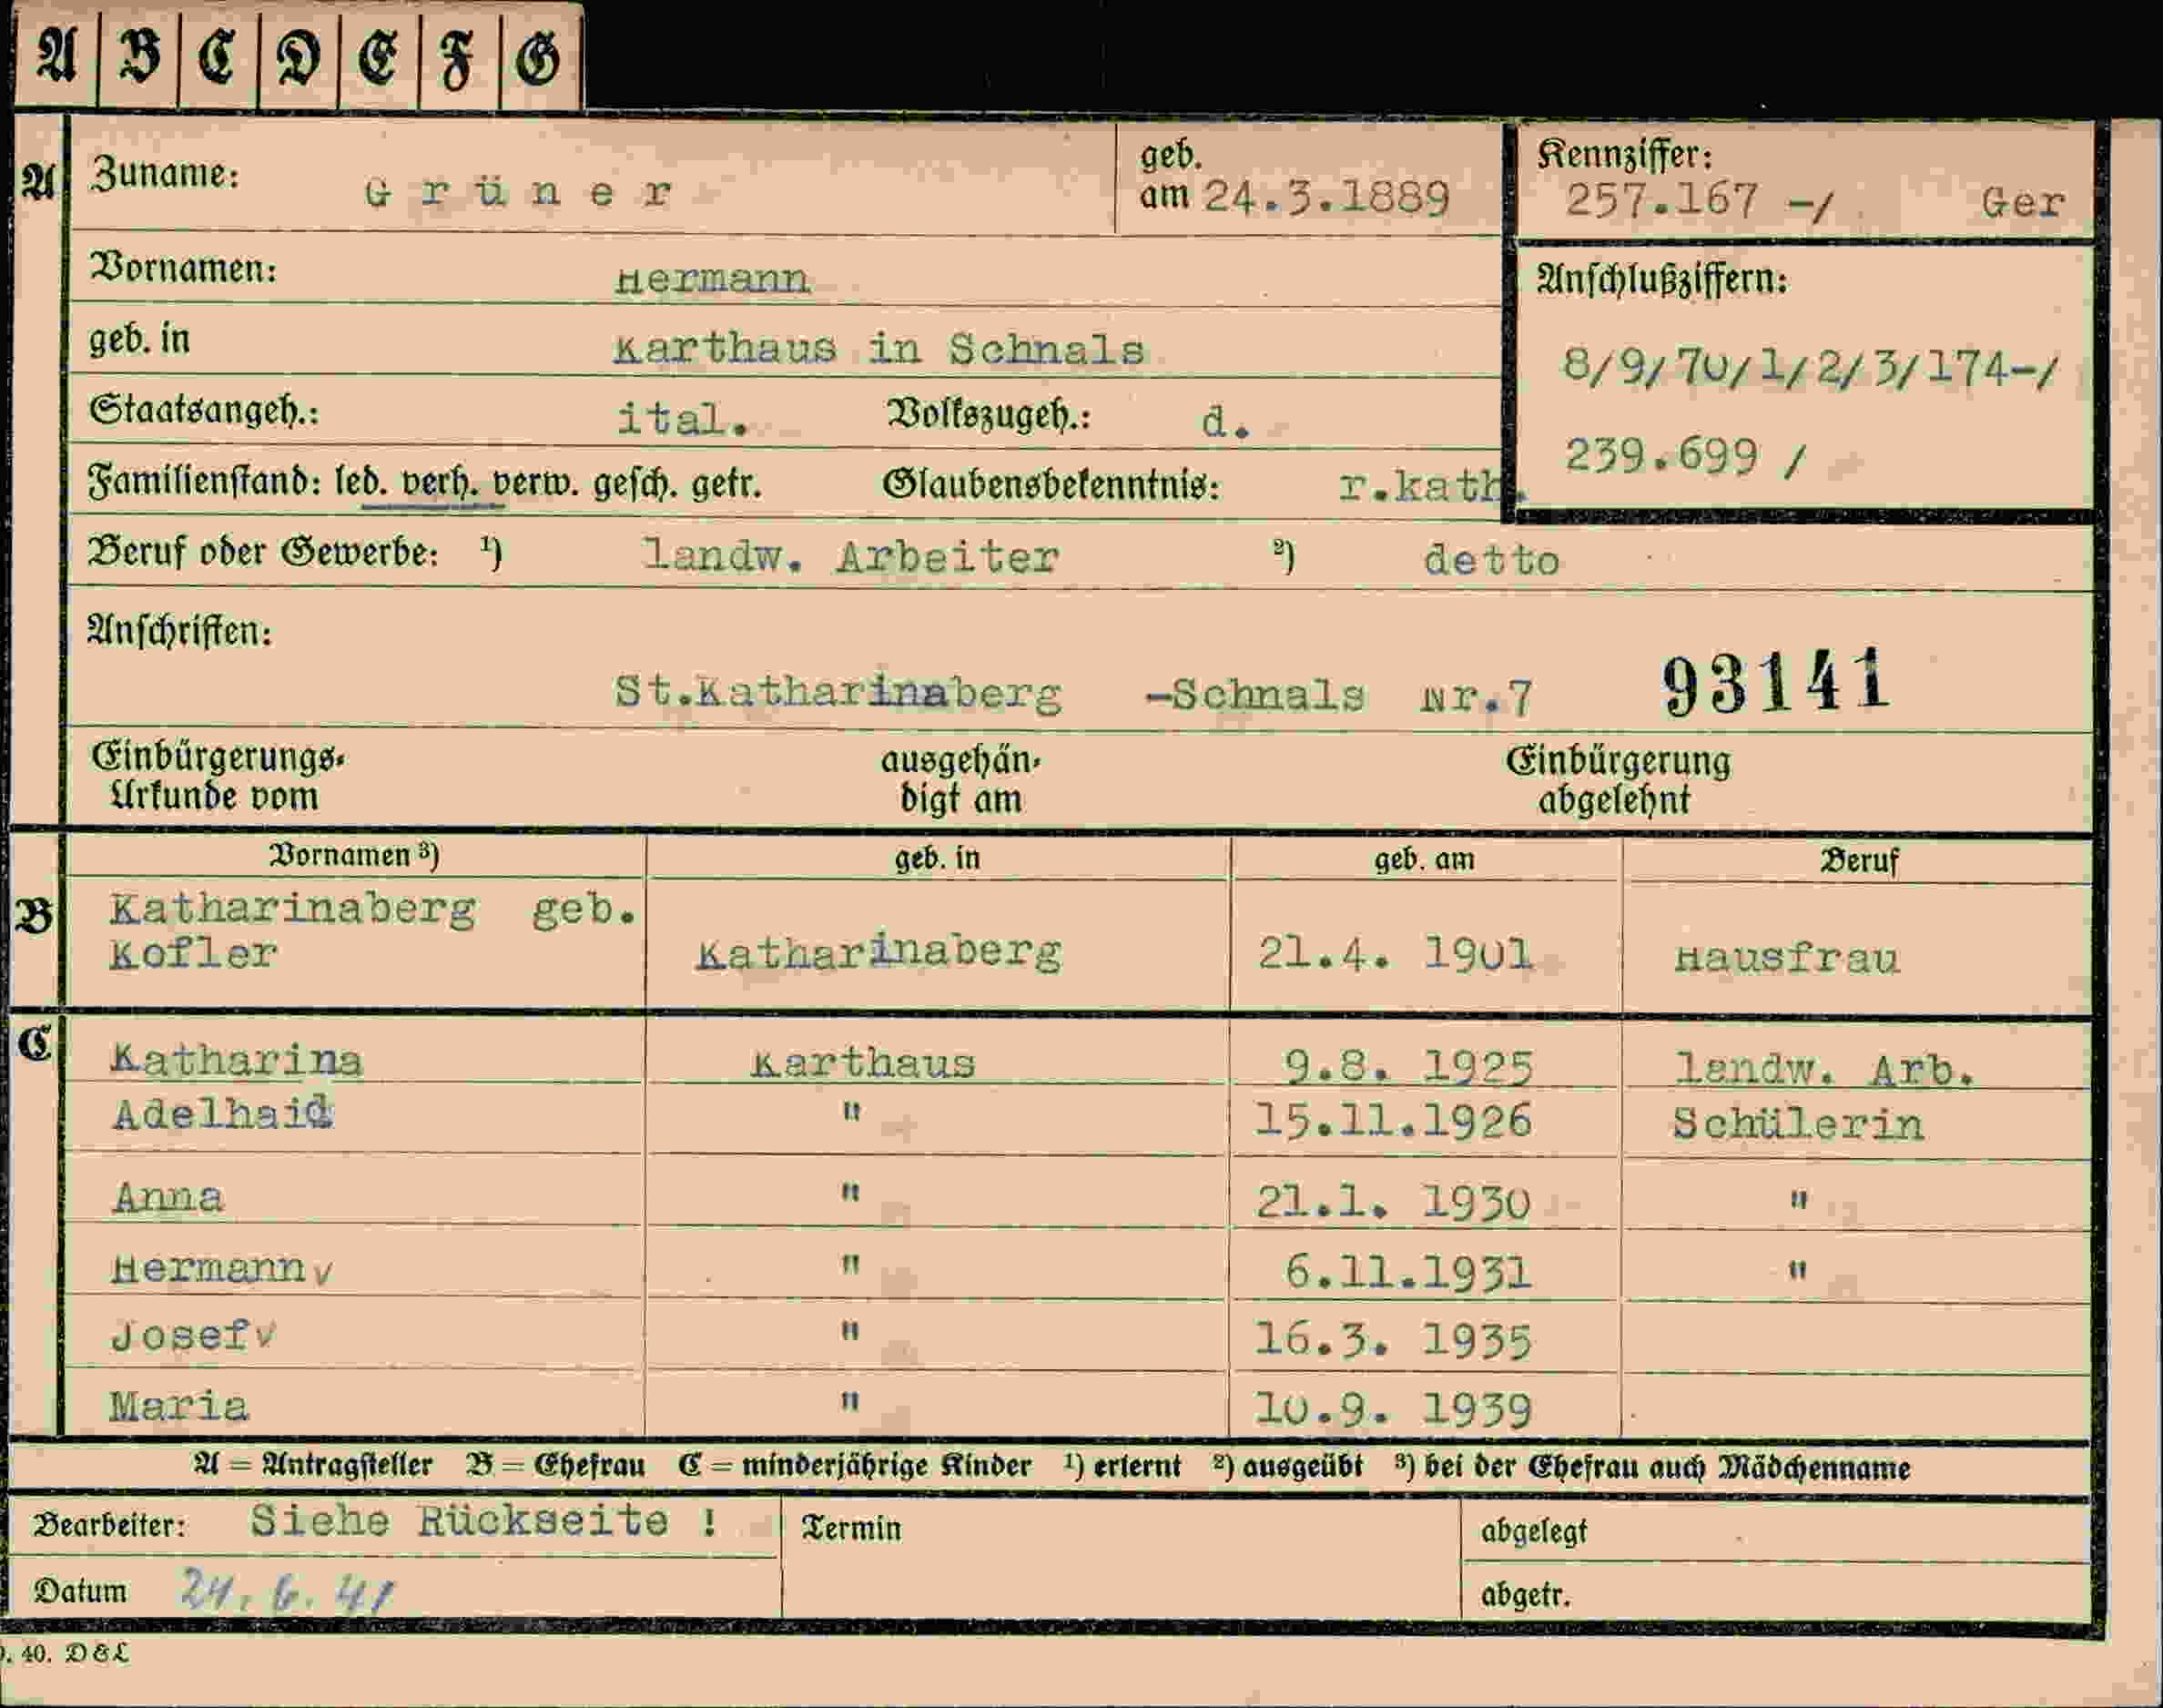 A B C D E F G
A Zuname: Grüner geb. am 24.3.1889 Kennziffer: 257.167 -/ Ger
Vornamen: Hermann Anschlußziffern:
geb. in Karthaus in Schnals 8/9/70/1/2/3/174-/
Staatsangeh.: ital. Volkszugeh.: d.
239.699 /
Familienstand: led. verh. verw. gesch. getr. Glaubensbekenntnis: r.kath.
Beruf oder Gewerbe: ¹) landw. Arbeiter ²) detto
Anschriften:
St.Katharinaberg -Schnals Nr.7 93141
Einbürgerungs- ausgehän- Einbürgerung
Urkunde vom digt am abgelehnt
Vornamen ³) geb. in geb. am Beruf
B Katharinaberg geb.
Kofler Katharinaberg 21.4. 1901 Hausfrau
C Katharina Karthaus 9.8. 1925 landw. Arb.
Adelhaid " 15.11.1926 Schülerin
Anna " 21.1. 1930 "
Hermann v " 6.11.1931 "
Josef v " 16.3. 1935
Maria " 10.9. 1939
A = Antragsteller B = Ehefrau C = minderjährige Kinder ¹) erlernt ²) ausgeübt ³) bei der Ehefrau auch Mädchenname
Bearbeiter: Siehe Rückseite ! Termin abgelegt
Datum 24. 6. 41 abgetr.
. 40. D & L